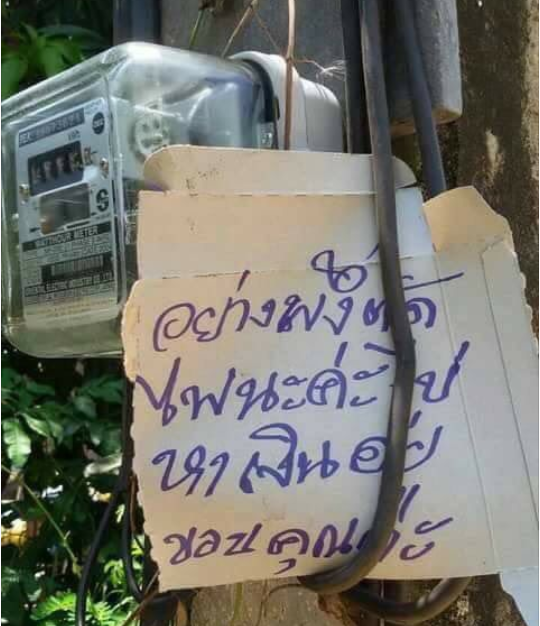 WATTHOUR METER
อย่างพึ่งตัด
ไฟนะค่ะ ไป
หาเงินอยู่
ขอบคุณค่ะ